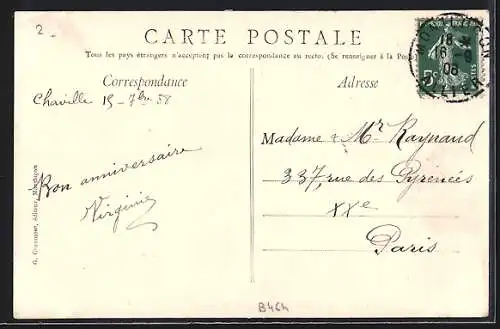 2
CARTE POSTALE
Tous les pays étrangers n'acceptent pas la correspondance au recto. (Se renseigner à la Poste)
Correspondance
Adresse
Chaville 15 - 7bre
Bon anniversaire
Virginie
Madame & Mr Raynaud
337, rue des Pyrénées
XXe
Paris
5c
18
16
08
B464